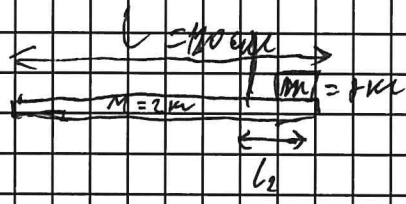 l = 110 см
M = 2 кг
m = 1 кг
l₂